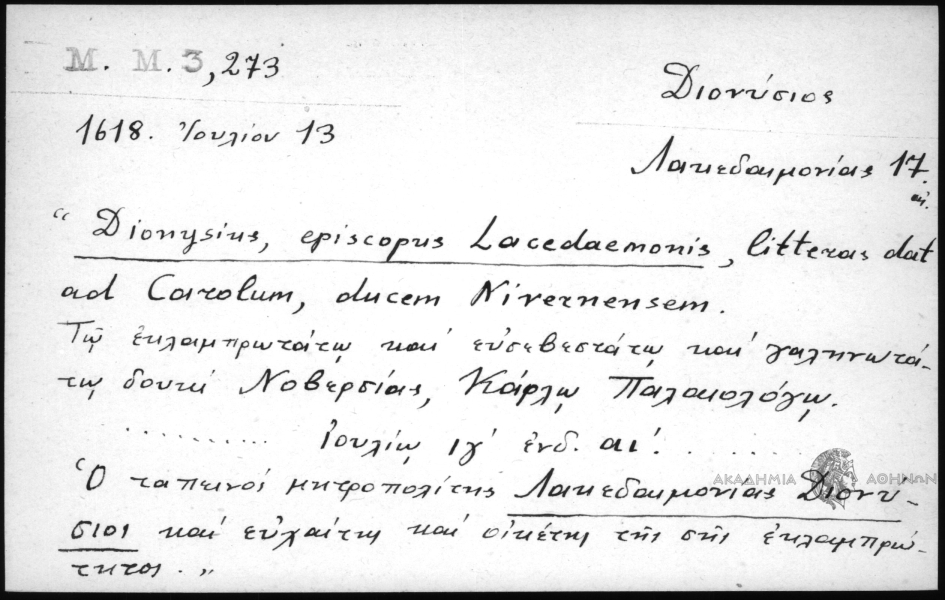 M. M. 3, 273
Διονύσιος
1618. Ἰουλίου 13
Λακεδαιμονίας 17. αἰ.
“Dionysius, episcopus Lacedaemonis, litteras dat
ad Carolum, ducem Nivernensem.
Τῷ ἐκλαμπρωτάτῳ καὶ εὐσεβεστάτῳ καὶ γαληνωτά-
τῳ δουκὶ Νοβερσίας, Κάρλῳ Παλαιολόγῳ.
.......... Ἰουλίῳ ιγ′ ἐνδ. αι′. . . . . .
Ὁ ταπεινὸς μητροπολίτης Λακεδαιμονίας Διονύ-
σιος καὶ εὐχαίτης καὶ οἰκέτης τῆς σῆς ἐκλαμπρό-
τητος.”
ΑΚΑΔΗΜΙΑ ΑΘΗΝΩΝ